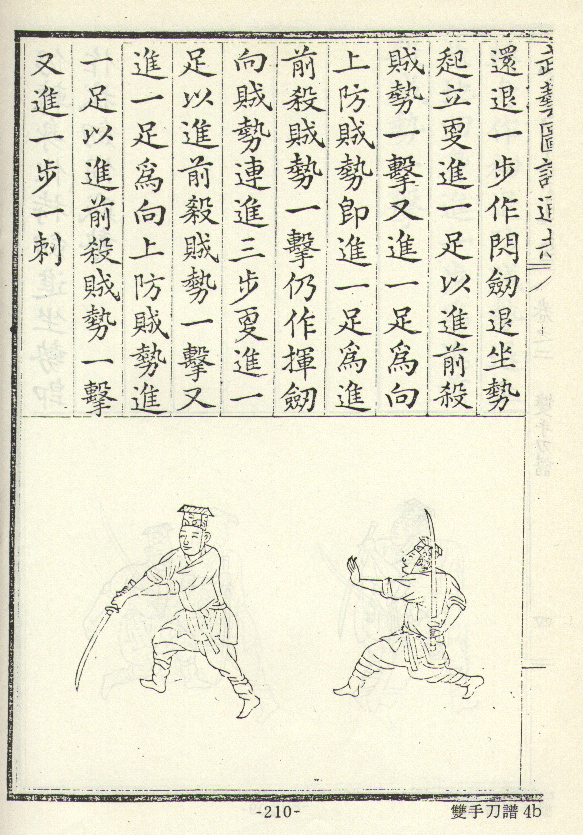 武藝圖譜通志
還退一步作閃劒退坐勢
起立更進一足以進前殺
賊勢一擊又進一足爲向
上防賊勢卽進一足爲進
前殺賊勢一擊仍作揮劒
向賊勢連進三步更進一
足以進前殺賊勢一擊又
進一足爲向上防賊勢進
一足以進前殺賊勢一擊
又進一步一刺
-210-
雙手刀譜 4b